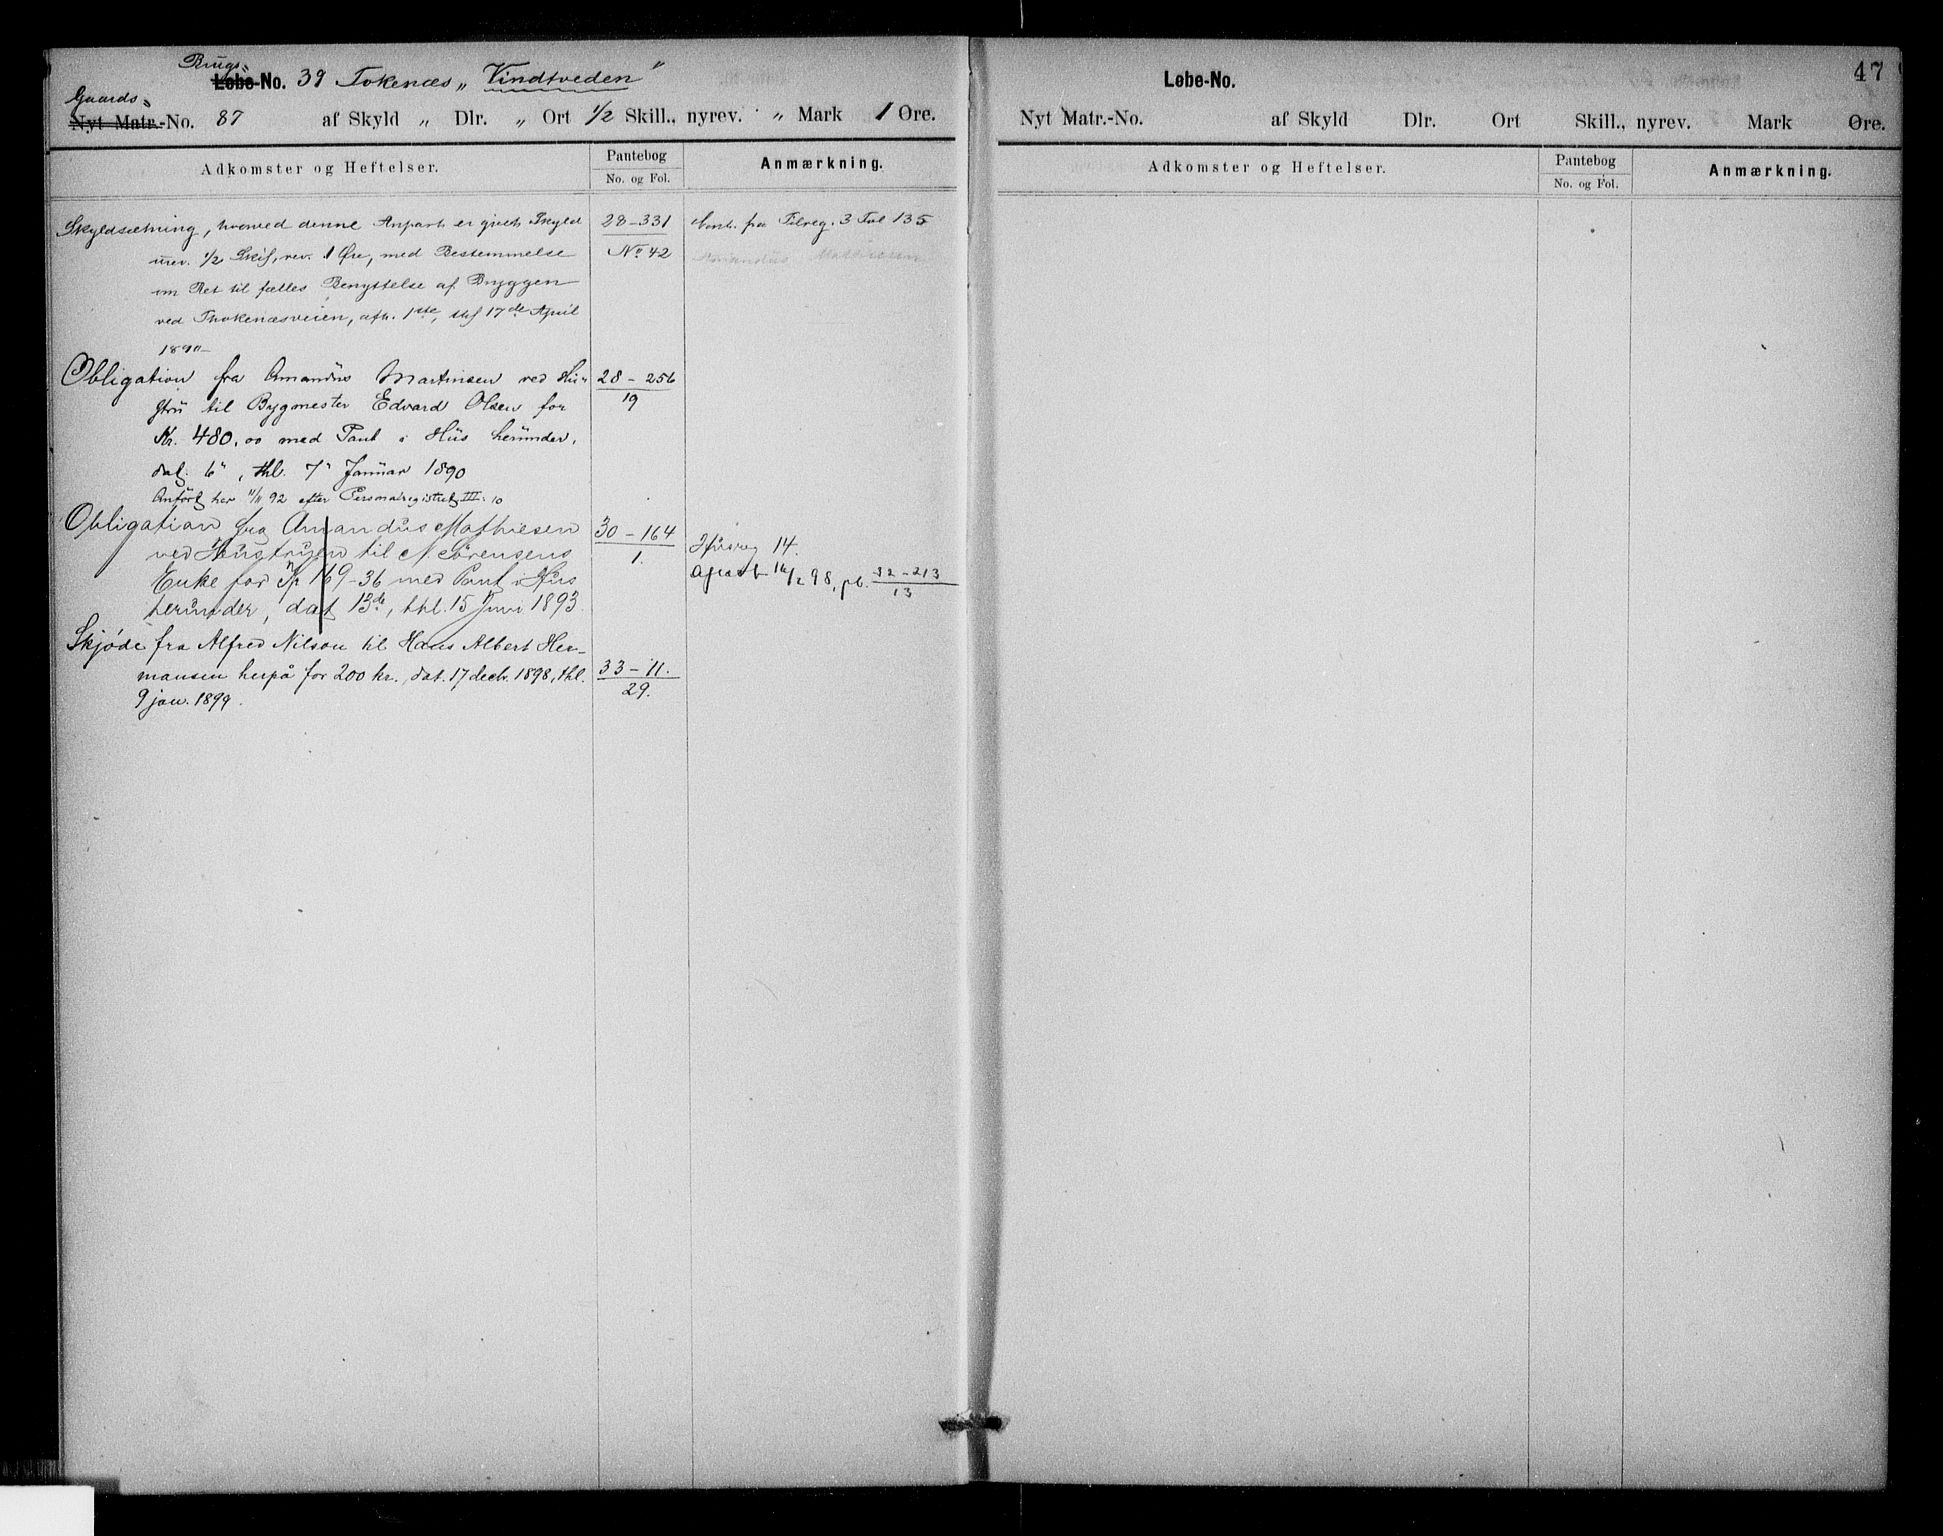 Brugs- Løbe-No. 39 Tokenæs „Vindtveden"
Gaards- Nyt Matr.-No. 87 af Skyld „ Dlr. „ Ort 1/2 Skill., nyrev. „ Mark 1 Øre.
Adkomster og Heftelser.
Pantebog
No. og Fol.
Anmærkning.
Skyldsætning, hvorved denne Anpart er givet Skyld
urev. 1/2 Skil, rev. 1 Øre, med Bestemmelse
om Ret til fælles Benyttelse af Bryggen
ved Thokenæsveien, afh. 1ste, thl 17de April
1890
28-331
No 42
Overf. fra Filreg. 3 Fol 135
Amandus Mathiesen
Obligation fra Amandus Martinsen ved Hu-
stru til Bygmester Edvard Olsen for
Kr. 480,00 med Pant i Hus herunder,
dat. 6", thl. 7" Januar 1890
Anført her 11/11 92 efter Personalregistret III. 10
28 - 256
19
Obligation fra Amandus Mathiesen
ved Hustruen til N Sørensens
Enke for Kr 169-36 med Pant i Hus
herunder, dat 13de, thl. 15 Juni 1893.
30 - 164
1.
Husreg 14.
Aflæst 16/2 98, pb. 32-213
13
Skjøde fra Alfred Nilson til Hans Albert Her-
mansen herpå for 200 kr., dat. 17 decbr. 1898, thl.
9 jan. 1899.
33 - 11.
29.
47
Løbe-No.
Nyt Matr.-No. af Skyld Dlr. Ort Skill., nyrev. Mark Øre.
Adkomster og Heftelser.
Pantebog
No. og Fol.
Anmærkning.